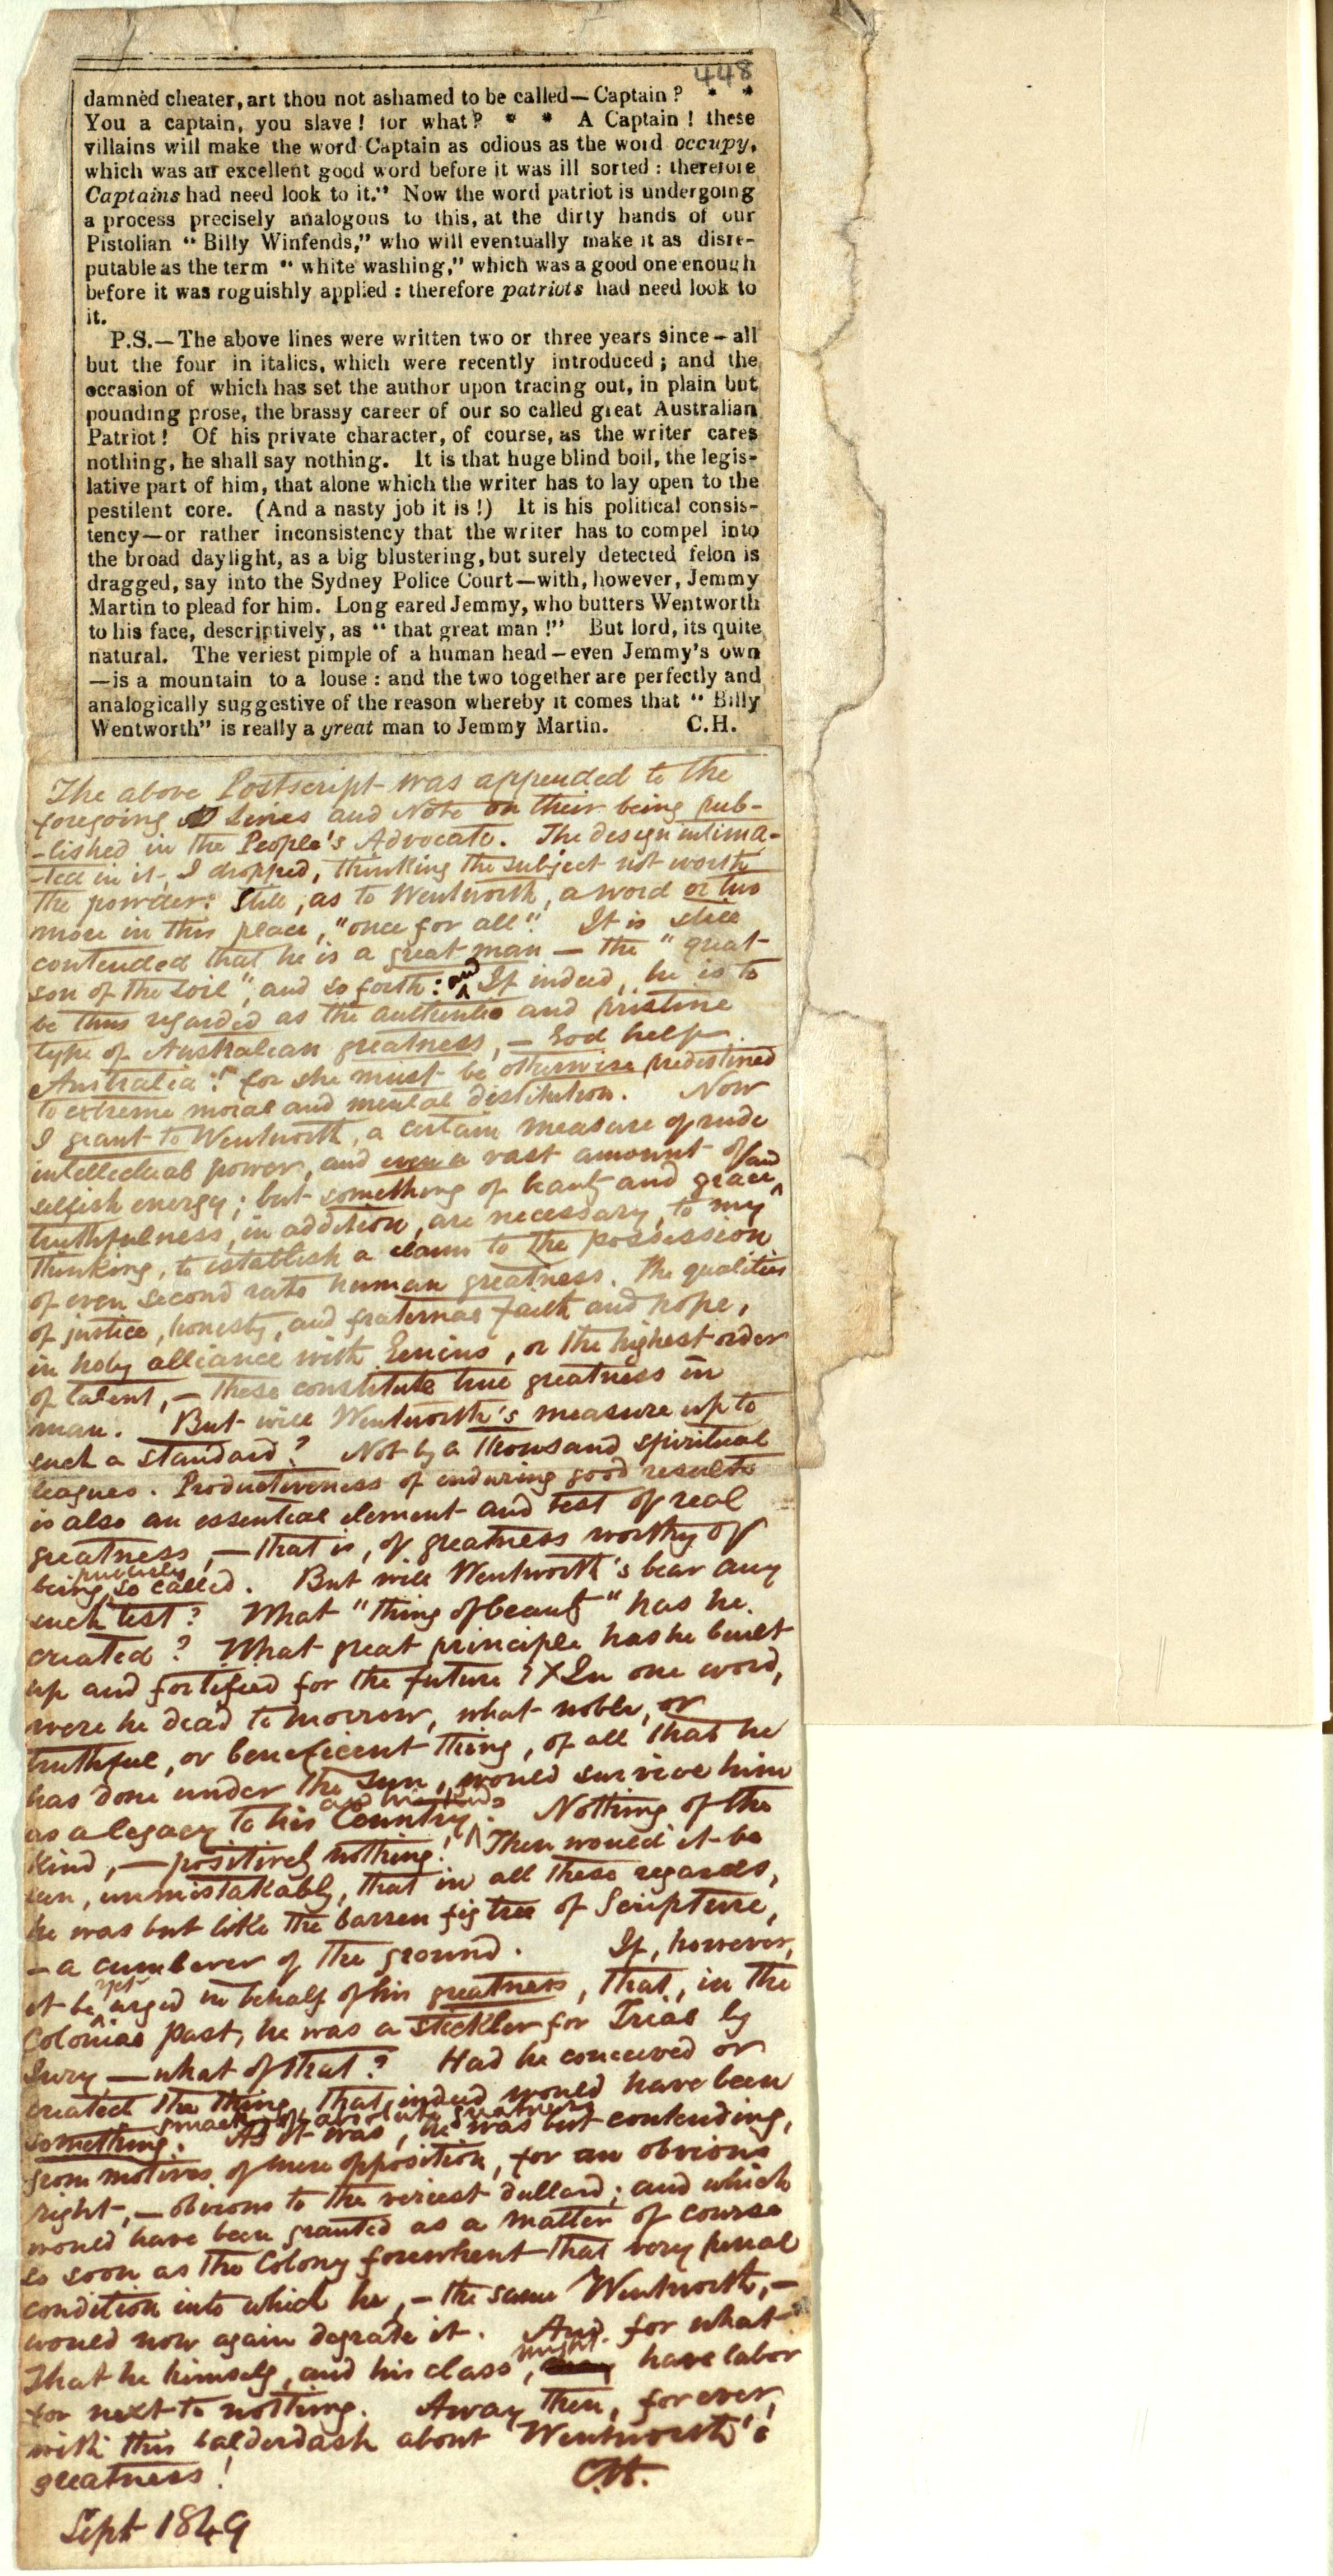 448
damnèd cheater, art thou not ashamed to be called—Captain? * *
You a captain, you slave! for what? * * A Captain! these
villains will make the word Captain as odious as the word occupy,
which was an excellent good word before it was ill sorted: therefore
Captains had need look to it." Now the word patriot is undergoing
a process precisely analogous to this, at the dirty hands of our
Pistolian "Billy Winfends," who will eventually make it as disre-
putable as the term "white washing," which was a good one enough
before it was roguishly applied: therefore patriots had need look to
it.
P.S.—The above lines were written two or three years since—all
but the four in italics, which were recently introduced; and the
occasion of which has set the author upon tracing out, in plain but
pounding prose, the brassy career of our so called great Australian
Patriot! Of his private character, of course, as the writer cares
nothing, he shall say nothing. It is that huge blind boil, the legis-
lative part of him, that alone which the writer has to lay open to the
pestilent core. (And a nasty job it is!) It is his political consis-
tency—or rather inconsistency that the writer has to compel into
the broad daylight, as a big blustering, but surely detected felon is
dragged, say into the Sydney Police Court—with, however, Jemmy
Martin to plead for him. Long eared Jemmy, who butters Wentworth
to his face, descriptively, as "that great man!" But lord, its quite
natural. The veriest pimple of a human head—even Jemmy's own
—is a mountain to a louse: and the two together are perfectly and
analogically suggestive of the reason whereby it comes that "Billy
Wentworth" is really a great man to Jemmy Martin. C.H.
The above Postscript was appended to the
foregoing Lines and Note on their being pub-
-lished in the People's Advocate. The design intima-
-ted in it, I dropped, thinking the subject not worth
the powder: Still, as to Wentworth, a word or two
more in this place, "once for all". It is still
contended that he is a great man — the "great
son of the soil", and so forth: and If indeed, he is to
be thus regarded as the authentic and pristine
type of Australian greatness, — God help
Australia! for she must be otherwise predestined
to extreme moral and mental distitution. Now
I grant to Wentworth, a certain measure of rude
intellectual power, and even a vast amount of
selfish energy; but something of beauty and grace, and
truthfulness, in addition, are necessary, to my
thinking, to establish a claim to the possession
of even second rate human greatness. The qualities
of justice, honesty, and fraternal faith and hope,
in holy alliance with Genius, or the highest order
of talent, — these constitute true greatness in
man. But will Wentworth's measure up to
such a standard? Not by a thousand spiritual
leagues. Productiveness of enduring good results
is also an essential element and test of real
greatness, — that is, of greatness worthy of
being so called. But will Wentworth's bear any
such test? What "thing of beauty" has he
created? What great principle has he built
up and fortified for the future? X In one word,
were he dead tomorrow, what noble, or
truthful, or beneficent thing, of all that he
has done under the sun, would survive him
as a legacy to his Country? Nothing of the
kind, — positively nothing! Then would it be
seen, unmistakably, that in all these regards,
he was but like the barren fig tree of Scripture,
— a cumberer of the ground. If, however,
it be yet urged in behalf of his greatness, that, in the
Colonial past, he was a stickler for Trial by
Jury — what of that? Had he conceived or
created the thing, that indeed would have been
something. As it was, he was but contending,
from motives of mere opposition, for an obvious
right, — obvious to the veriest dullard; and which
would have been granted as a matter of course
so soon as the Colony forewhent that very penal
condition into which he, — the same Wentworth, —
would now again degrade it. And for what
That he himself, and his class, might have labor
for next to nothing. Away then, for ever,
with this balderdash about Wentworth's
greatness! C.H.
Sept 1849